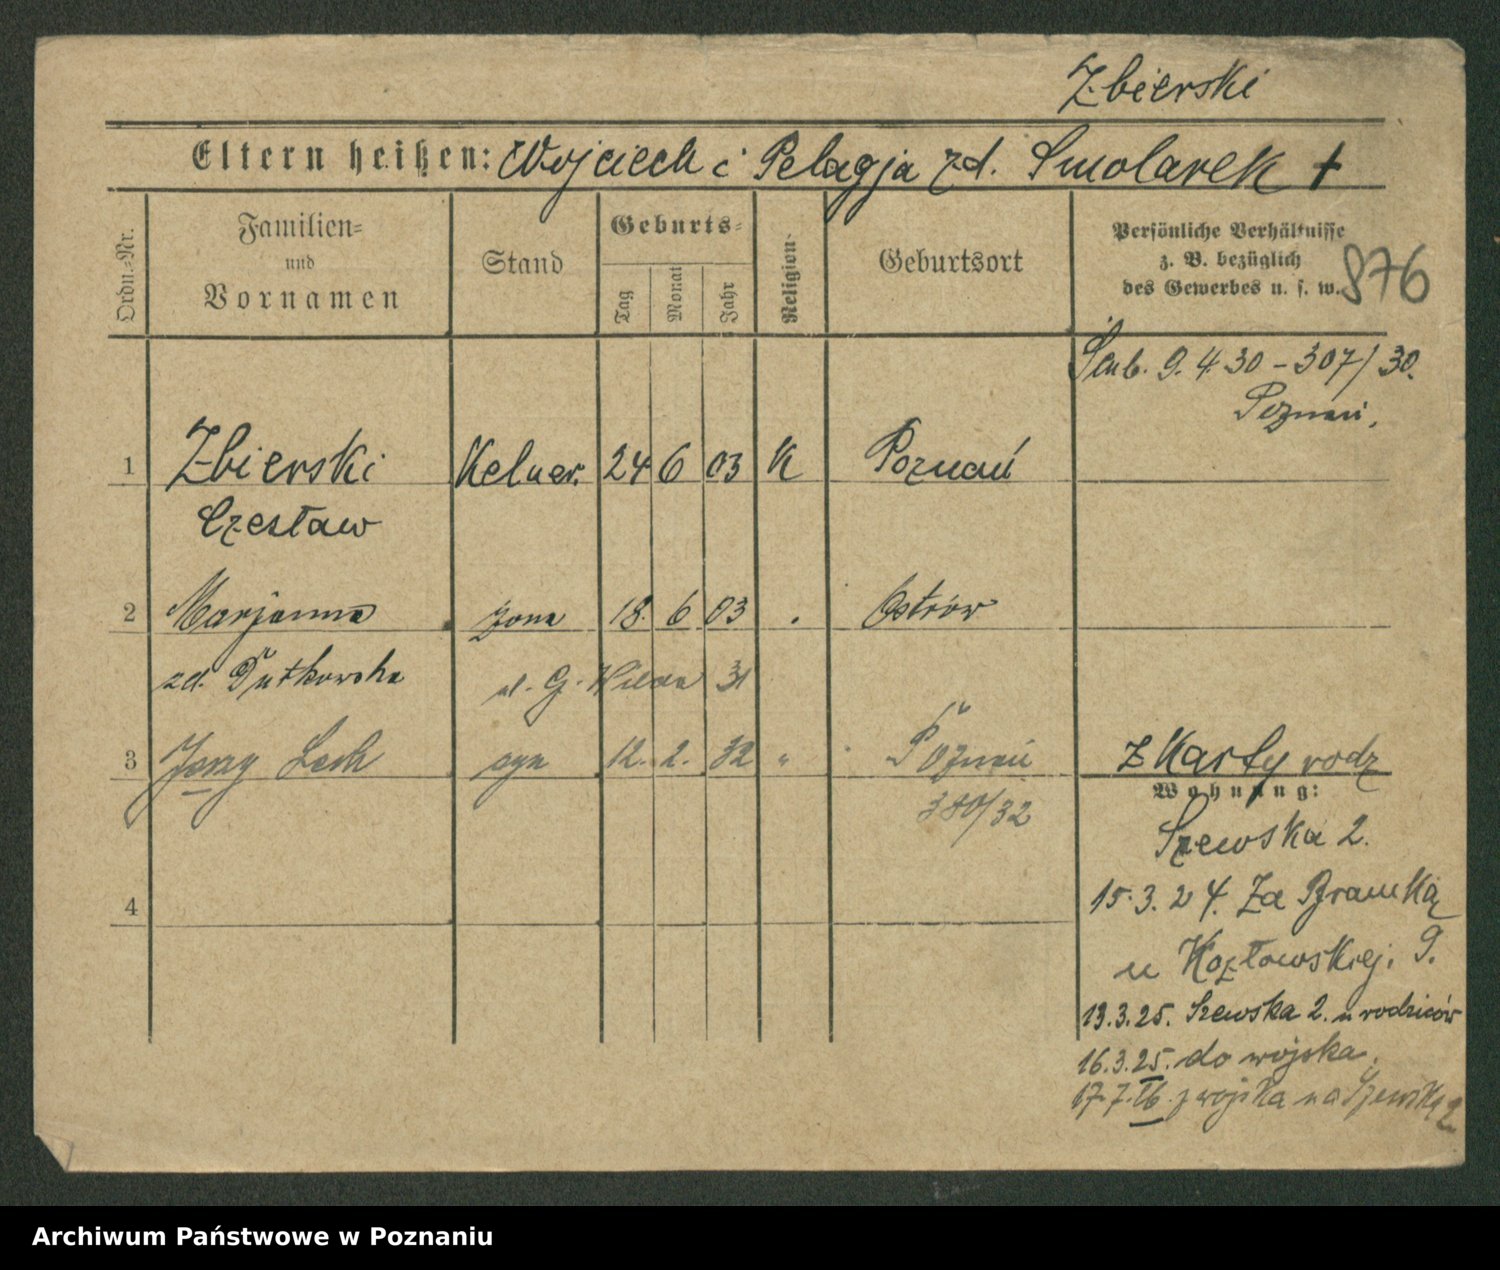 Zbierski
Eltern heißen: Wojciech i Pelagja zd. Smolarek †
Ordn.-Nr.
Familien-
und
Vornamen
Stand
Geburts-
Tag
Monat
Jahr
Religion
Geburtsort
Persönliche Verhältnisse
z. B. bezüglich
des Gewerbes u. s. w.
876
Ślub. 9. 4. 30 - 307/30.
Poznań.
1 Zbierski Kelner. 24 6 03 K Poznań
Czesław
2 Marjanna żona 18. 6 03 Ostrów
zd. Dutkowska G. Wilda 31
3 Jerzy Lech syn 12. 2. 32 " Poznań
380/32
z Karty rodz
Wohnung:
Szewska 2.
4
15.3.24. Za Bramką
u Kozłowskiej. 9.
13.3.25. Szewska 2. u rodziców
16.3.25. do wojska.
17.7.26. z wojska na Szewską 2
Archiwum Państwowe w Poznaniu